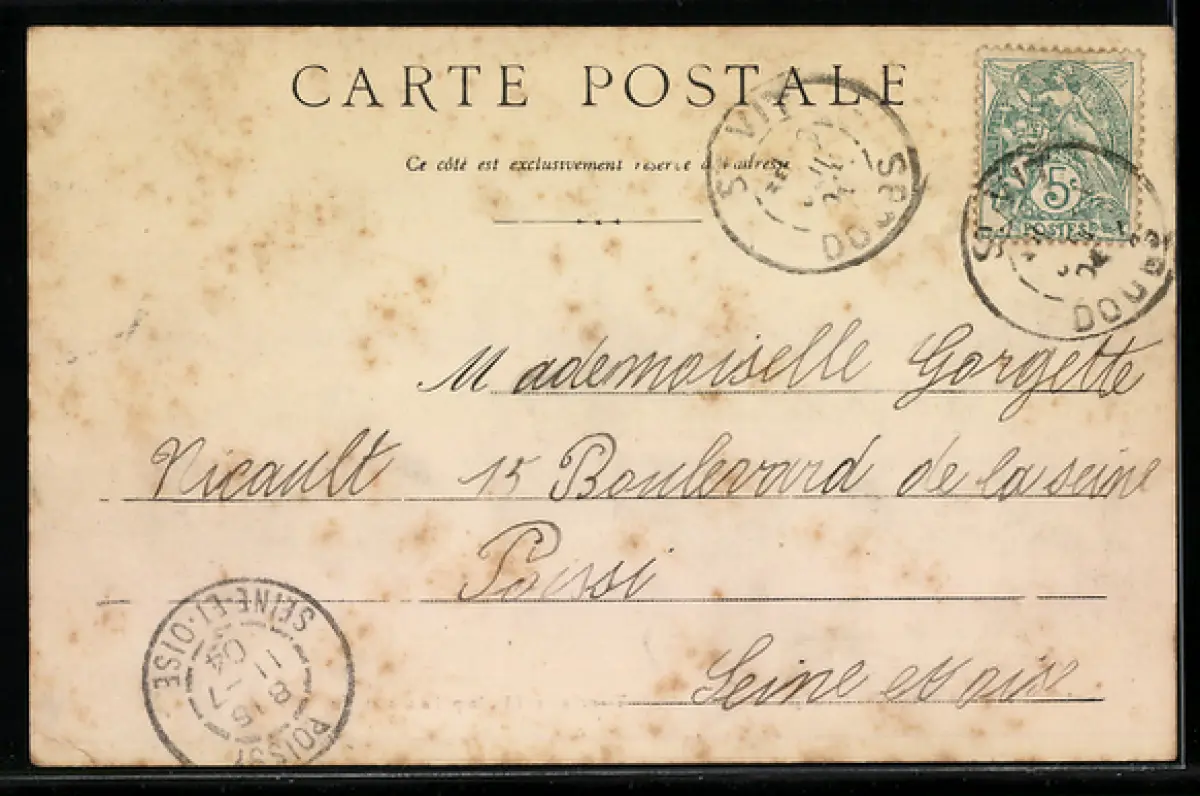 CARTE POSTALE
Ce côté est exclusivement réservé à l'adresse
ST VIT
DOUBS
5c
POSTES
ST VIT
DOUBS
Mademoiselle Gorgette
Nicault 15 Boulevard de la seine
Poissi
Seine et oise
POISSY
8 15
11 7
04
SEINE-ET-OISE